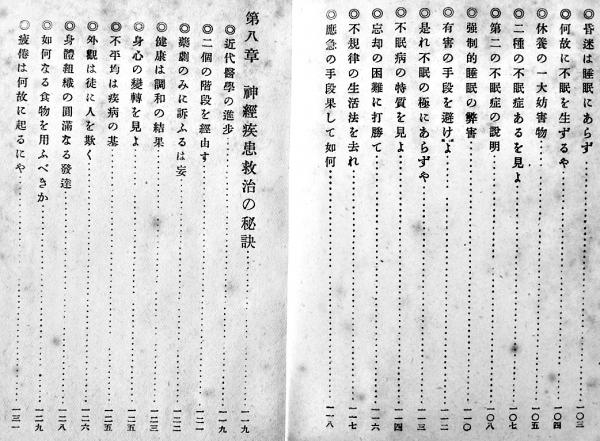 ◎昏迷は睡眠にあらず……一〇三
◎何故に不眠を生ずるや……一〇四
◎休養の一大妨害物……一〇五
◎二種の不眠症あるを見よ……一〇七
◎第二の不眠症の説明……一〇八
◎強制的睡眠の弊害……一一〇
◎有害の手段を避けよ……一一二
◎是れ不眠の極にあらずや……一一三
◎不眠病の特質を見よ……一一四
◎忘却の困難に打勝て……一一六
◎不規律の生活法を去れ……一一七
◎應急の手段果して如何……一一八
第八章 神經疾患救治の秘訣……一一九
◎近代醫學の進步……一一九
◎二個の階段を經由す……一二一
◎藥劑のみに訴ふるは妄……一二二
◎健康は調和の結果……一二三
◎身心の變轉を見よ……一二五
◎不平均は疾病の基……一二五
◎外觀は徒に人を欺く……一二六
◎身體組織の圓滿なる發達……一二八
◎如何なる食物を用ふべきか……一二九
◎疲倦は何故に起るにや……一三一